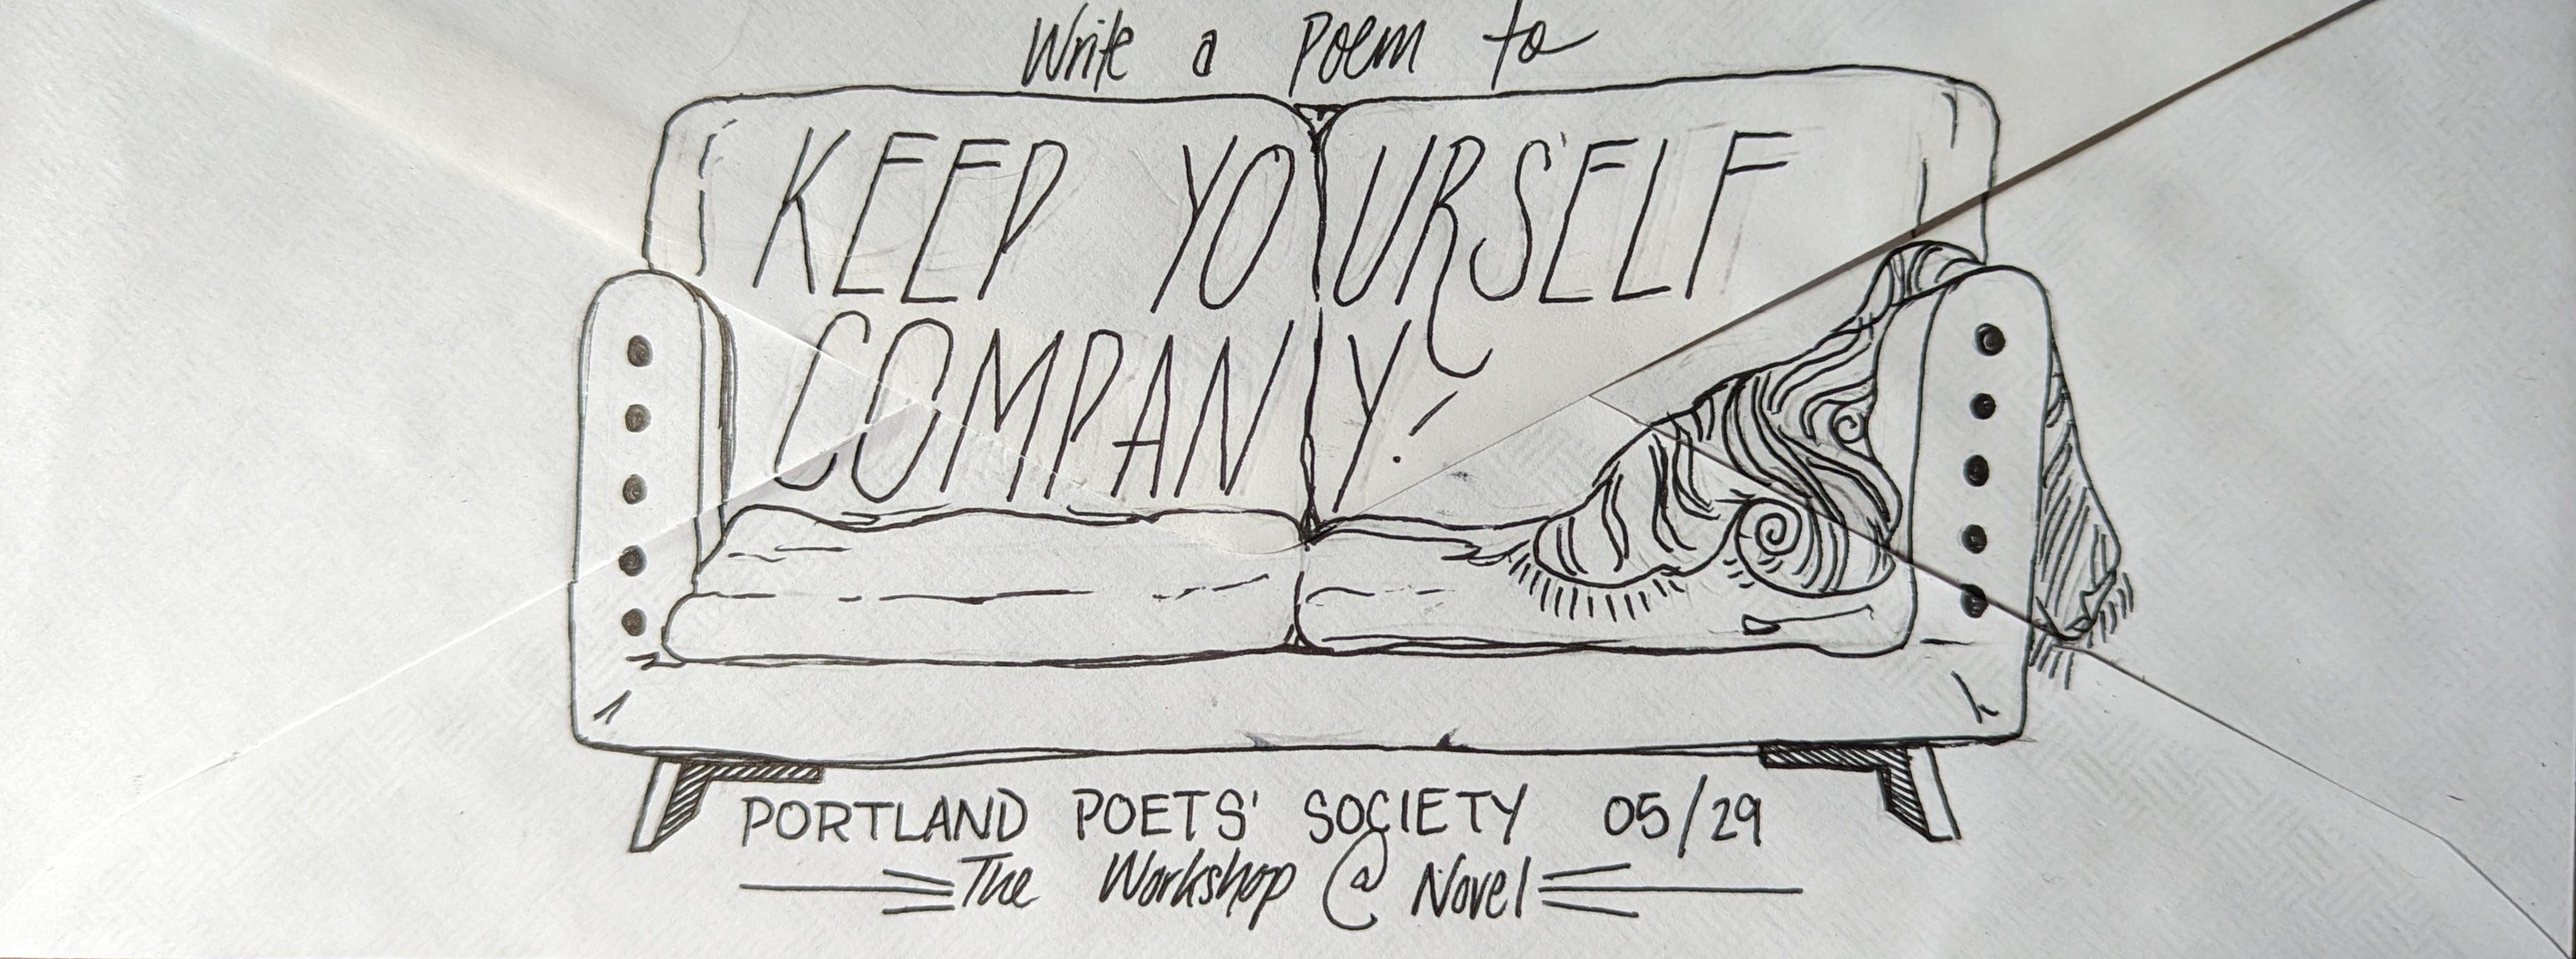 Write a Poem to
KEEP YOURSELF
COMPANY!
PORTLAND POETS' SOCIETY 05/29
The Workshop @ Novel